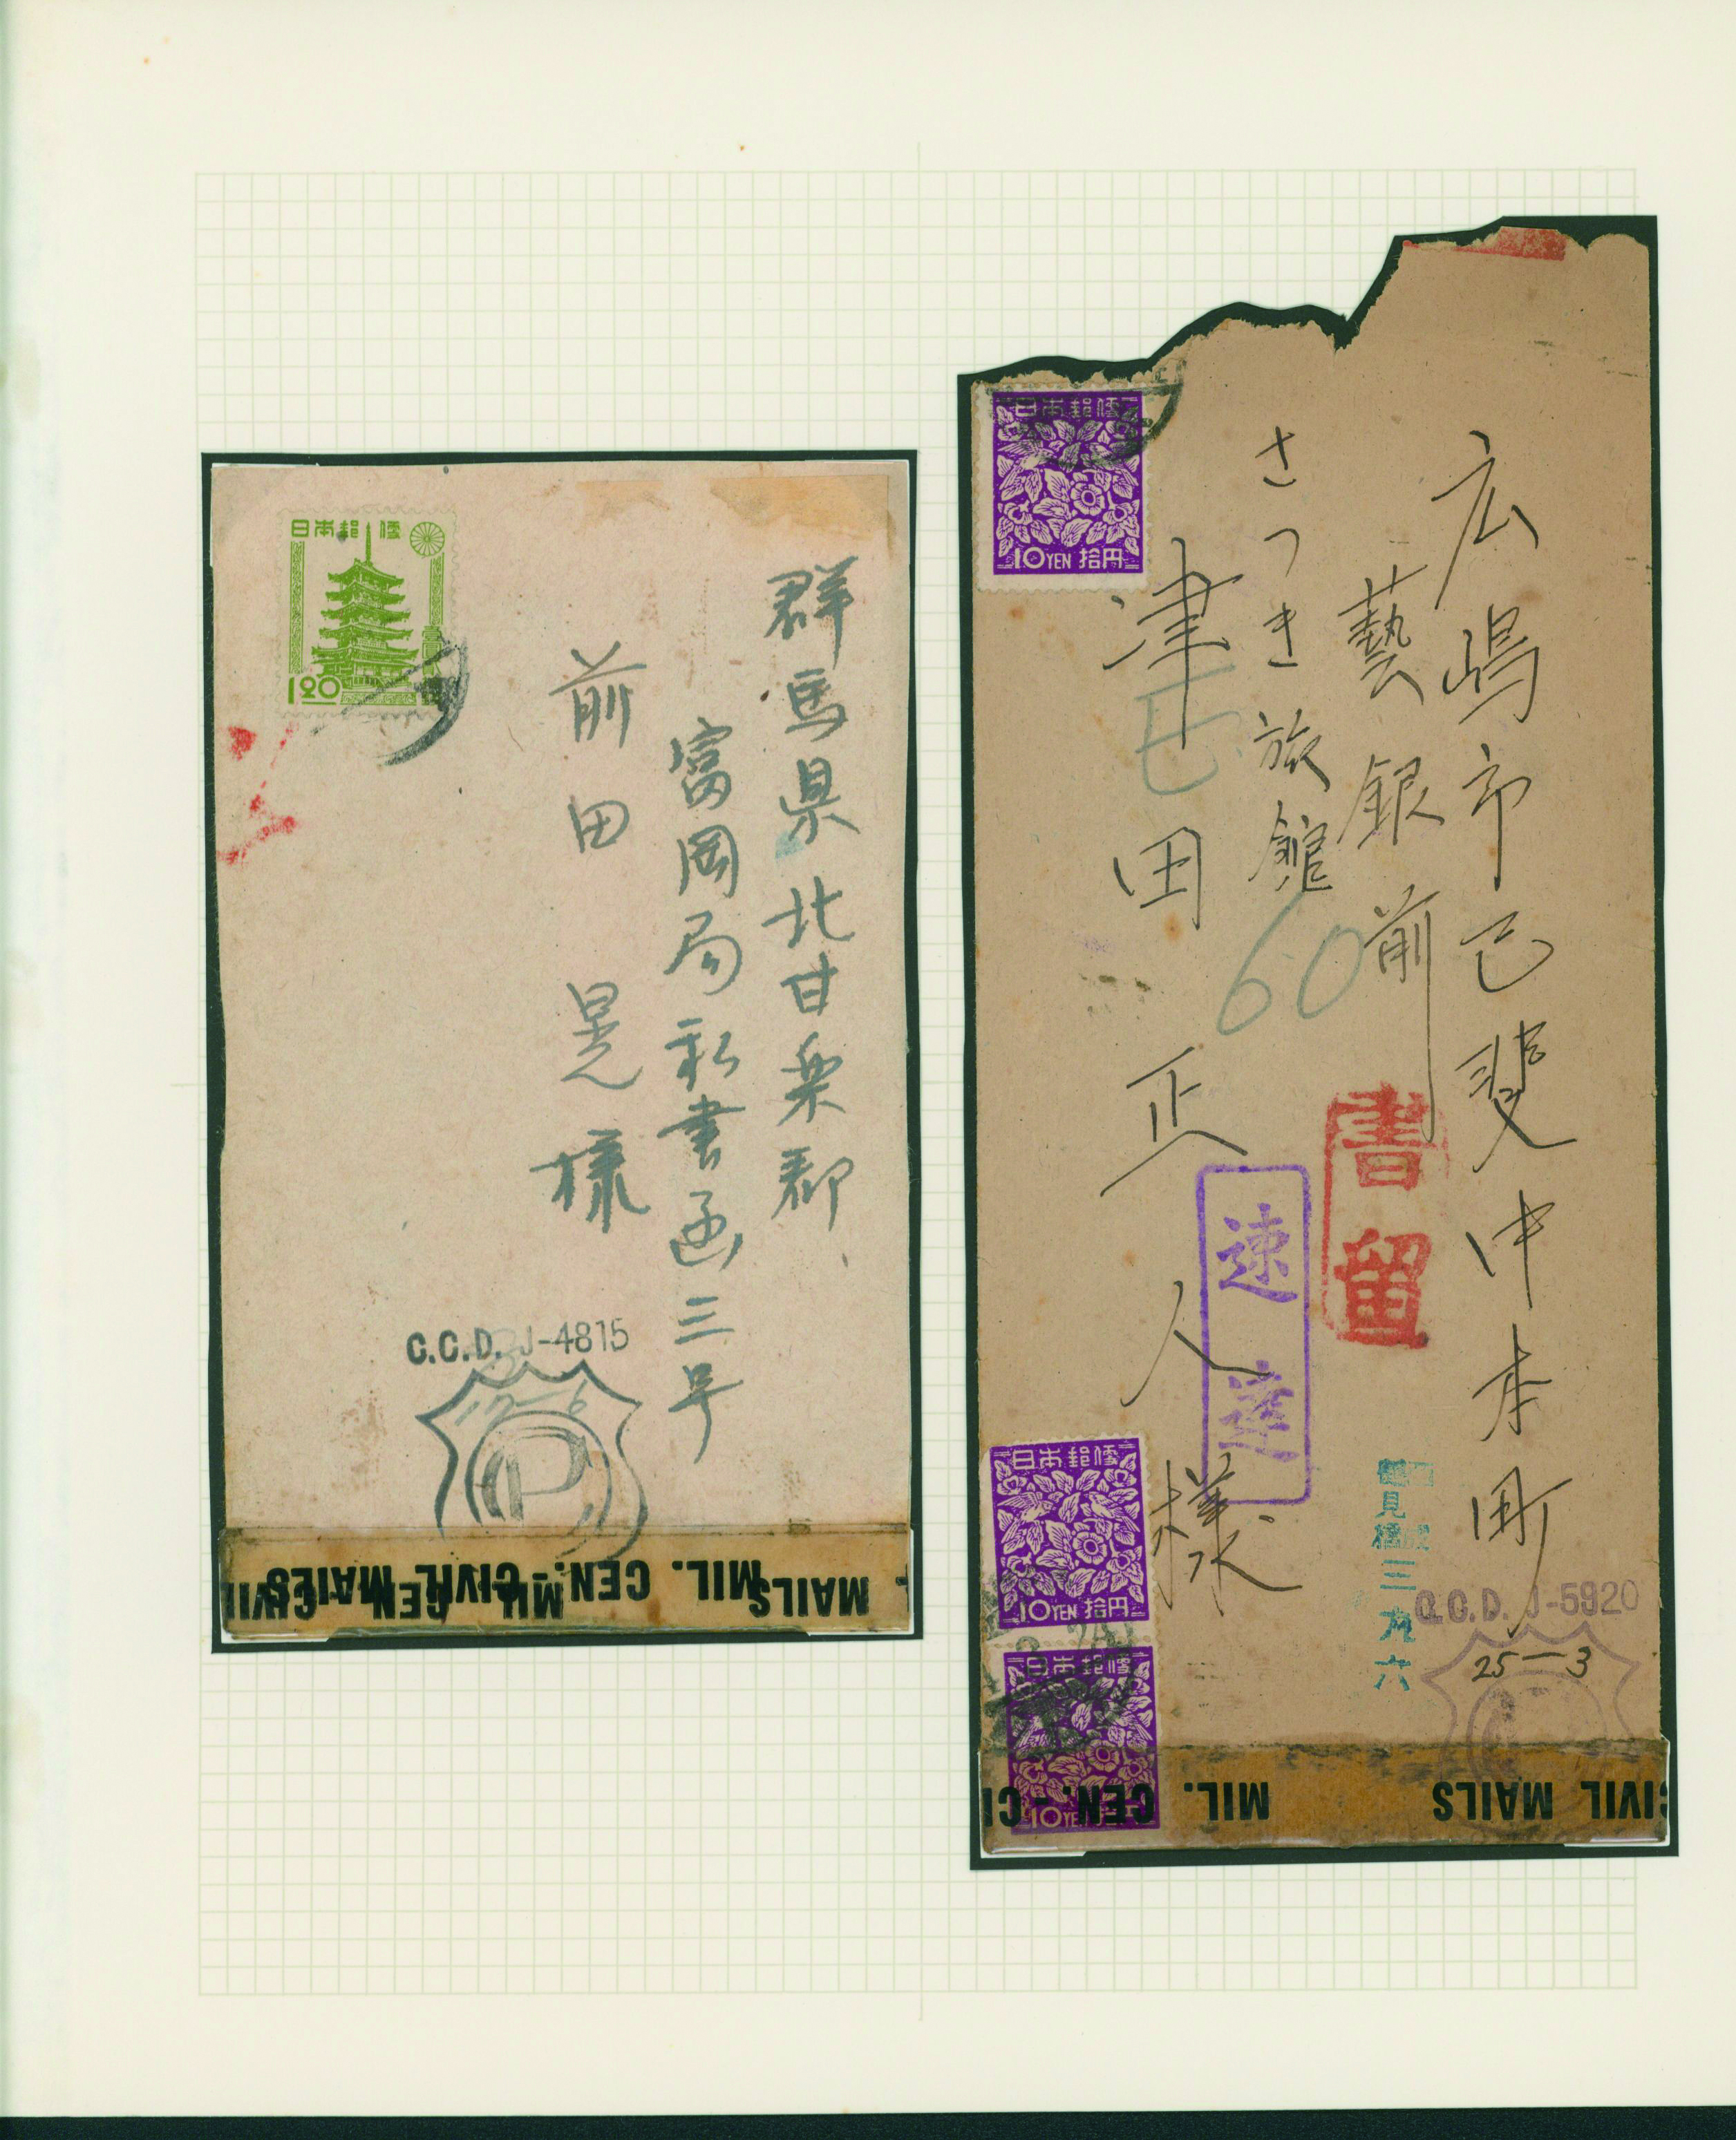 日本郵便
1.20
群馬県北甘楽郡
富岡局私書函三号
前田晃様
C.C.D. J-4815
12-6
P
MIL. CEN.-CIVIL MAILS
日本郵便
10YEN 拾円
広嶋市己斐中本町
藝銀前
さつき旅館
津田正人様
60
書留
速達
日本郵便
10YEN 拾円
日本郵便
10YE
三九六
C.C.D. J-5920
25-3
MIL. CEN.-CI
CIVIL MAILS